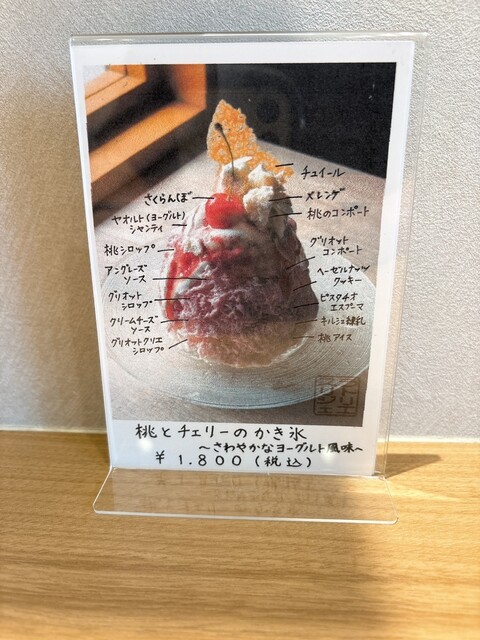 チュイール
さくらんぼ
メレンゲ
ヤオルト(ヨーグルト)
シャンティ
桃のコンポート
桃シロップ
グリオット
コンポート
アングレーズ
ソース
ヘーゼルナッツ
クッキー
グリオット
シロップ
ピスタチオ
エスプーマ
クリームチーズ
ソース
キルシュ練乳
グリオットクリエ
シロップ
桃アイス
桃とチェリーのかき氷
〜さわやかなヨーグルト風味〜
¥1.800(税込)